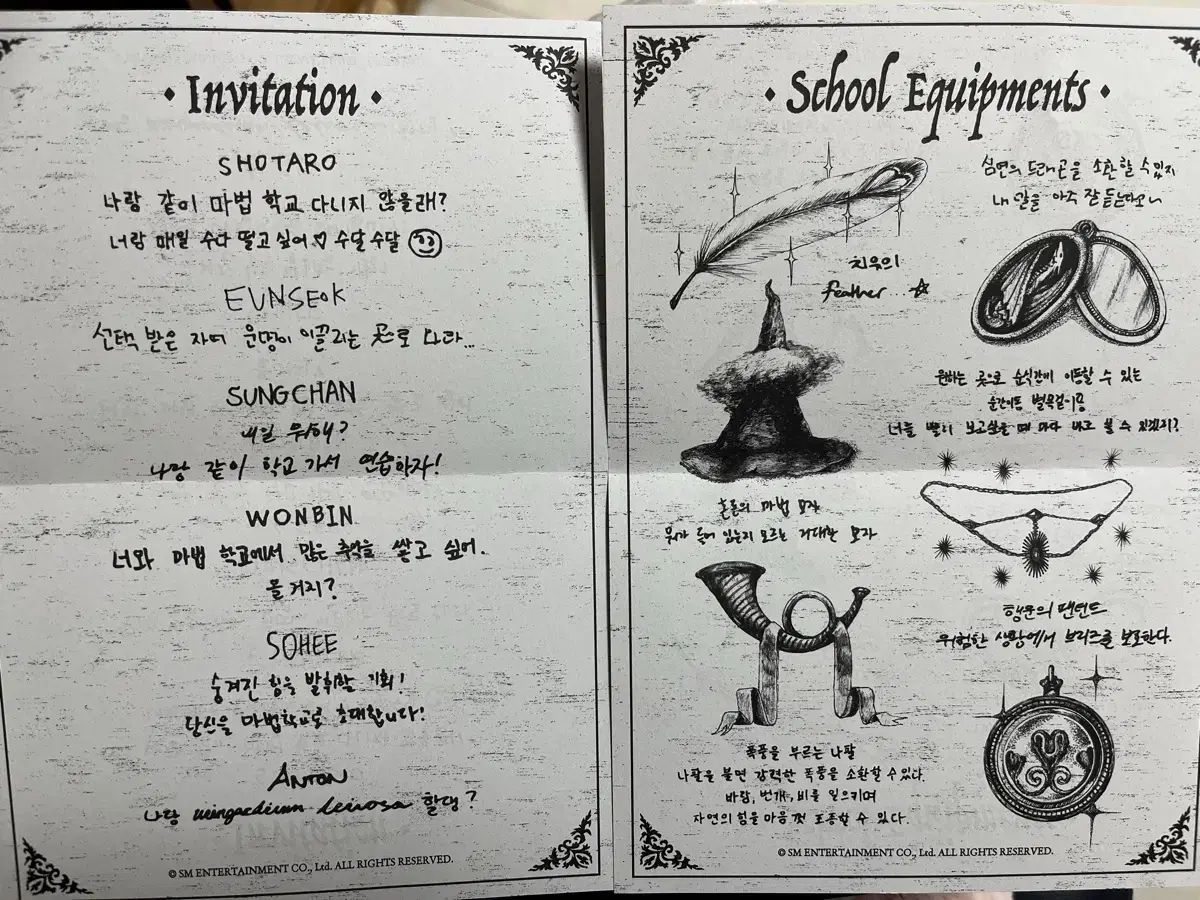 Invitation
SHOTARO
나랑 같이 마법 학교 다니지 않을래?
너랑 매일 수다 떨고 싶어♡ 수달수달
EUNSEOK
선택 받은 자여 운명이 이끌리는 곳으로 나타...
SUNGCHAN
내일 뭐해?
나랑 같이 학교 가서 연습하자!
WONBIN
너와 마법 학교에서 많은 추억을 쌓고 싶어.
올거지?
SOHEE
숨겨진 힘을 발휘할 기회!
당신을 마법학교로 초대합니다!
ANTON
나랑 wingardium leviosa 할댕?
© SM ENTERTAINMENT CO., Ltd. ALL RIGHTS RESERVED.
School Equipments
심연의 드래곤을 소환할 수 있지
내 말을 아주 잘 듣는다고~
치유의
feather...☆
원하는 곳으로 순식간에 이동할 수 있는
순간이동 별목걸이용
너를 빨리 보고싶을 때 마다 바로 볼 수 있겠지?
혼돈의 마법 모자
뭐가 들어 있는지 모르는 거대한 모자
행운의 팬던트
위험한 상황에서 브리즈를 보호한다.
폭풍을 부르는 나팔
나팔을 불면 강력한 폭풍을 소환할 수 있다.
바람, 번개, 비를 일으키며
자연의 힘을 마음껏 조종할 수 있다.
© SM ENTERTAINMENT CO., Ltd. ALL RIGHTS RESERVED.